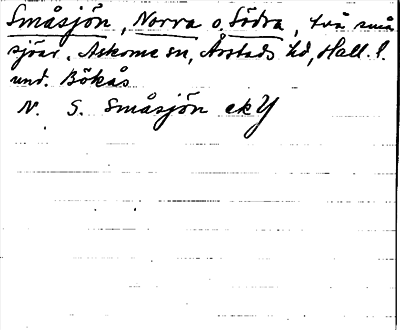 Småsjön, Norra o. Södra, två små
sjöar, Askome sn, Årstads hd, Hall. l.
und. Bökås
N. S. Småsjön ek Y